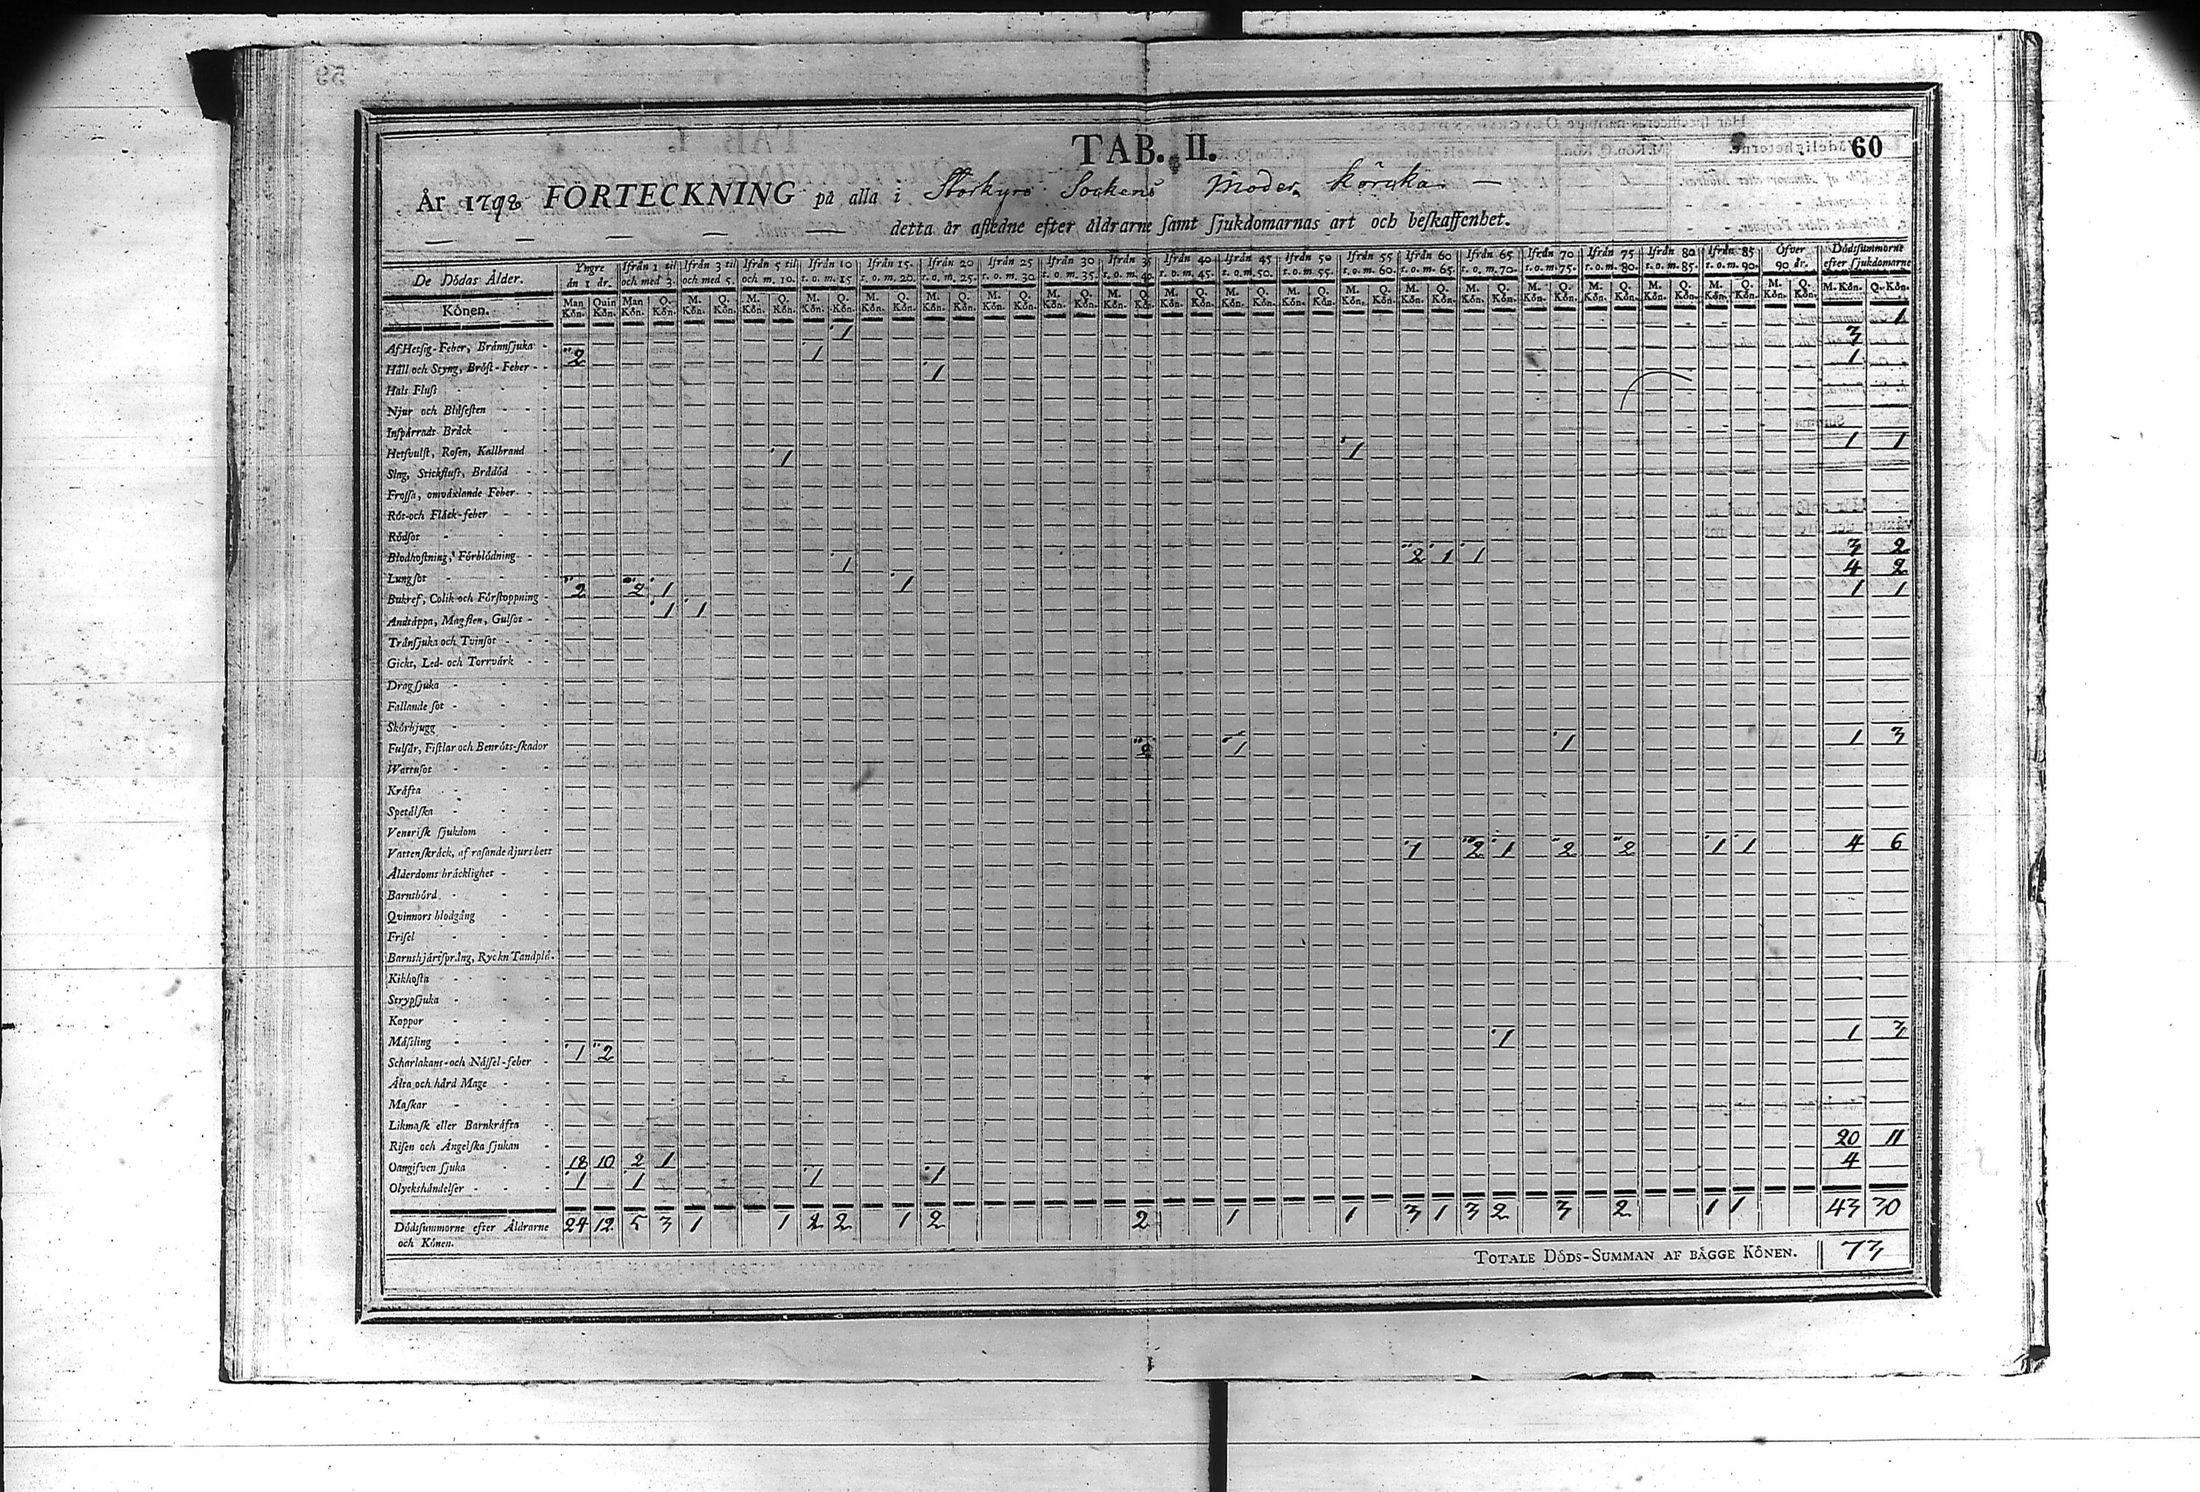 TAB. II.
60
År 1792 FÖRTECKNING på alla i Storkyro Sockens Moder kÿrka —
detta år afledne efter åldrarne samt sjukdomarnas art och beskaffenhet.
De Dödas Ålder. Yngre än 1 år. Ifrån 1 til och med 3. Ifrån 3 til och med 5. Ifrån 5 til och m. 10. Ifrån 10 t. o. m. 15 Ifrån 15 t. o. m. 20. Ifrån 20 t. o. m. 25. Ifrån 25 t. o. m. 30 Ifrån 30 t. o. m. 35. Ifrån 35 t. o. m. 40. Ifrån 40 t. o. m. 45. Ifrån 45 t. o. m. 50. Ifrån 50 t. o. m. 55. Ifrån 55 t. o. m. 60. Ifrån 60 t. o. m. 65. Ifrån 65 t. o. m. 70. Ifrån 70 t. o. m. 75. Ifrån 75 t. o. m. 80. Ifrån 80 t. o. m. 85. Ifrån 85 t. o. m. 90. Öfver 90 år. Dödssummorne efter sjukdomarne
Könen. Man Kön. Quin Kön. Man Kön. Q. Kön. M. Kön. Q. Kön. M. Kön. Q. Kön. M. Kön. Q. Kön. M. Kön. Q. Kön. M. Kön. Q. Kön. M. Kön. Q. Kön. M. Kön. Q. Kön. M. Kön. Q. Kön. M. Kön. Q. Kön. M. Kön. Q. Kön. M. Kön. Q. Kön. M. Kön. Q. Kön. M. Kön. Q. Kön. M. Kön. Q. Kön. M. Kön. Q. Kön. M. Kön. Q. Kön. M. Kön. Q. Kön. M. Kön. Q. Kön. M. Kön. Q. Kön. M. Kön. Q. Kön.
Af Hetsig-Feber, Brännsjuka 1 1
Håll och Styng, Bröst-Feber 2 1 3
Hals Fluss 1 1
Njur och Blåsesten
Inspärradt Bråck
Hetsvulst, Rosen, Kallbrand
Slag, Stickfluss, Brådöd 1 1 1 1
Frossa, omväxlande Feber
Röt-och Fläck-feber
Rödsot
Blodhostning, Förblödning
Lungsot 1 2 1 1 3 2
Bukref, Colik och Förstoppning 2 2 1 1 4 2
Andtäppa, Magsten, Gulsot 1 1 1 1
Trånsjuka och Tvinsot
Gickt, Led- och Torrvärk
Dragsjuka
Fallande sot
Skörbjugg
Fulsår, Fistlar och Benröts-skador
Wattusot 2 1 1 1 3
Kräfta
Spetälska
Venerisk sjukdom
Vattenskräck, af rasande djurs bett
Ålderdoms bräcklighet 1 2 1 2 2 1 1 4 6
Barnsbörd
Qvinnors blodgång
Frisel
Barnshjärtsprång, Ryck n Tandplå.
Kikhosta
Strypsjuka
Koppor
Mässling 1 1 3
Scharlakans-och Nässel-feber 1 2
Älta och hård Mage
Maskar
Likmask eller Barnkräfta
Risen och Ängelska sjukan
Oangifven sjuka 18 10 2 1 20 11
Olyckshändelser 1 1 1 1 4
Dödssummorne efter Åldrarne och Könen. 24 12 5 3 1 1 2 2 1 2 2 1 1 3 1 3 2 3 2 1 1 43 30
TOTALE DÖDS-SUMMAN AF BÄGGE KÖNEN. 73